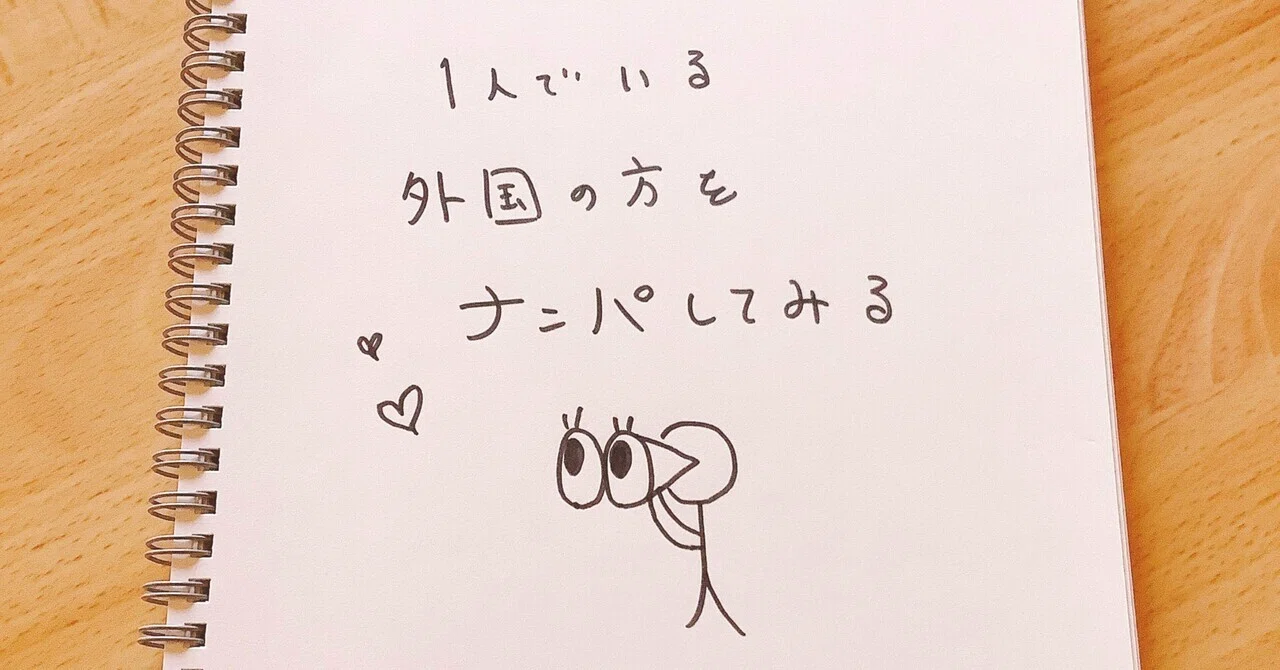 1人でいる
外国の方を
ナンパしてみる